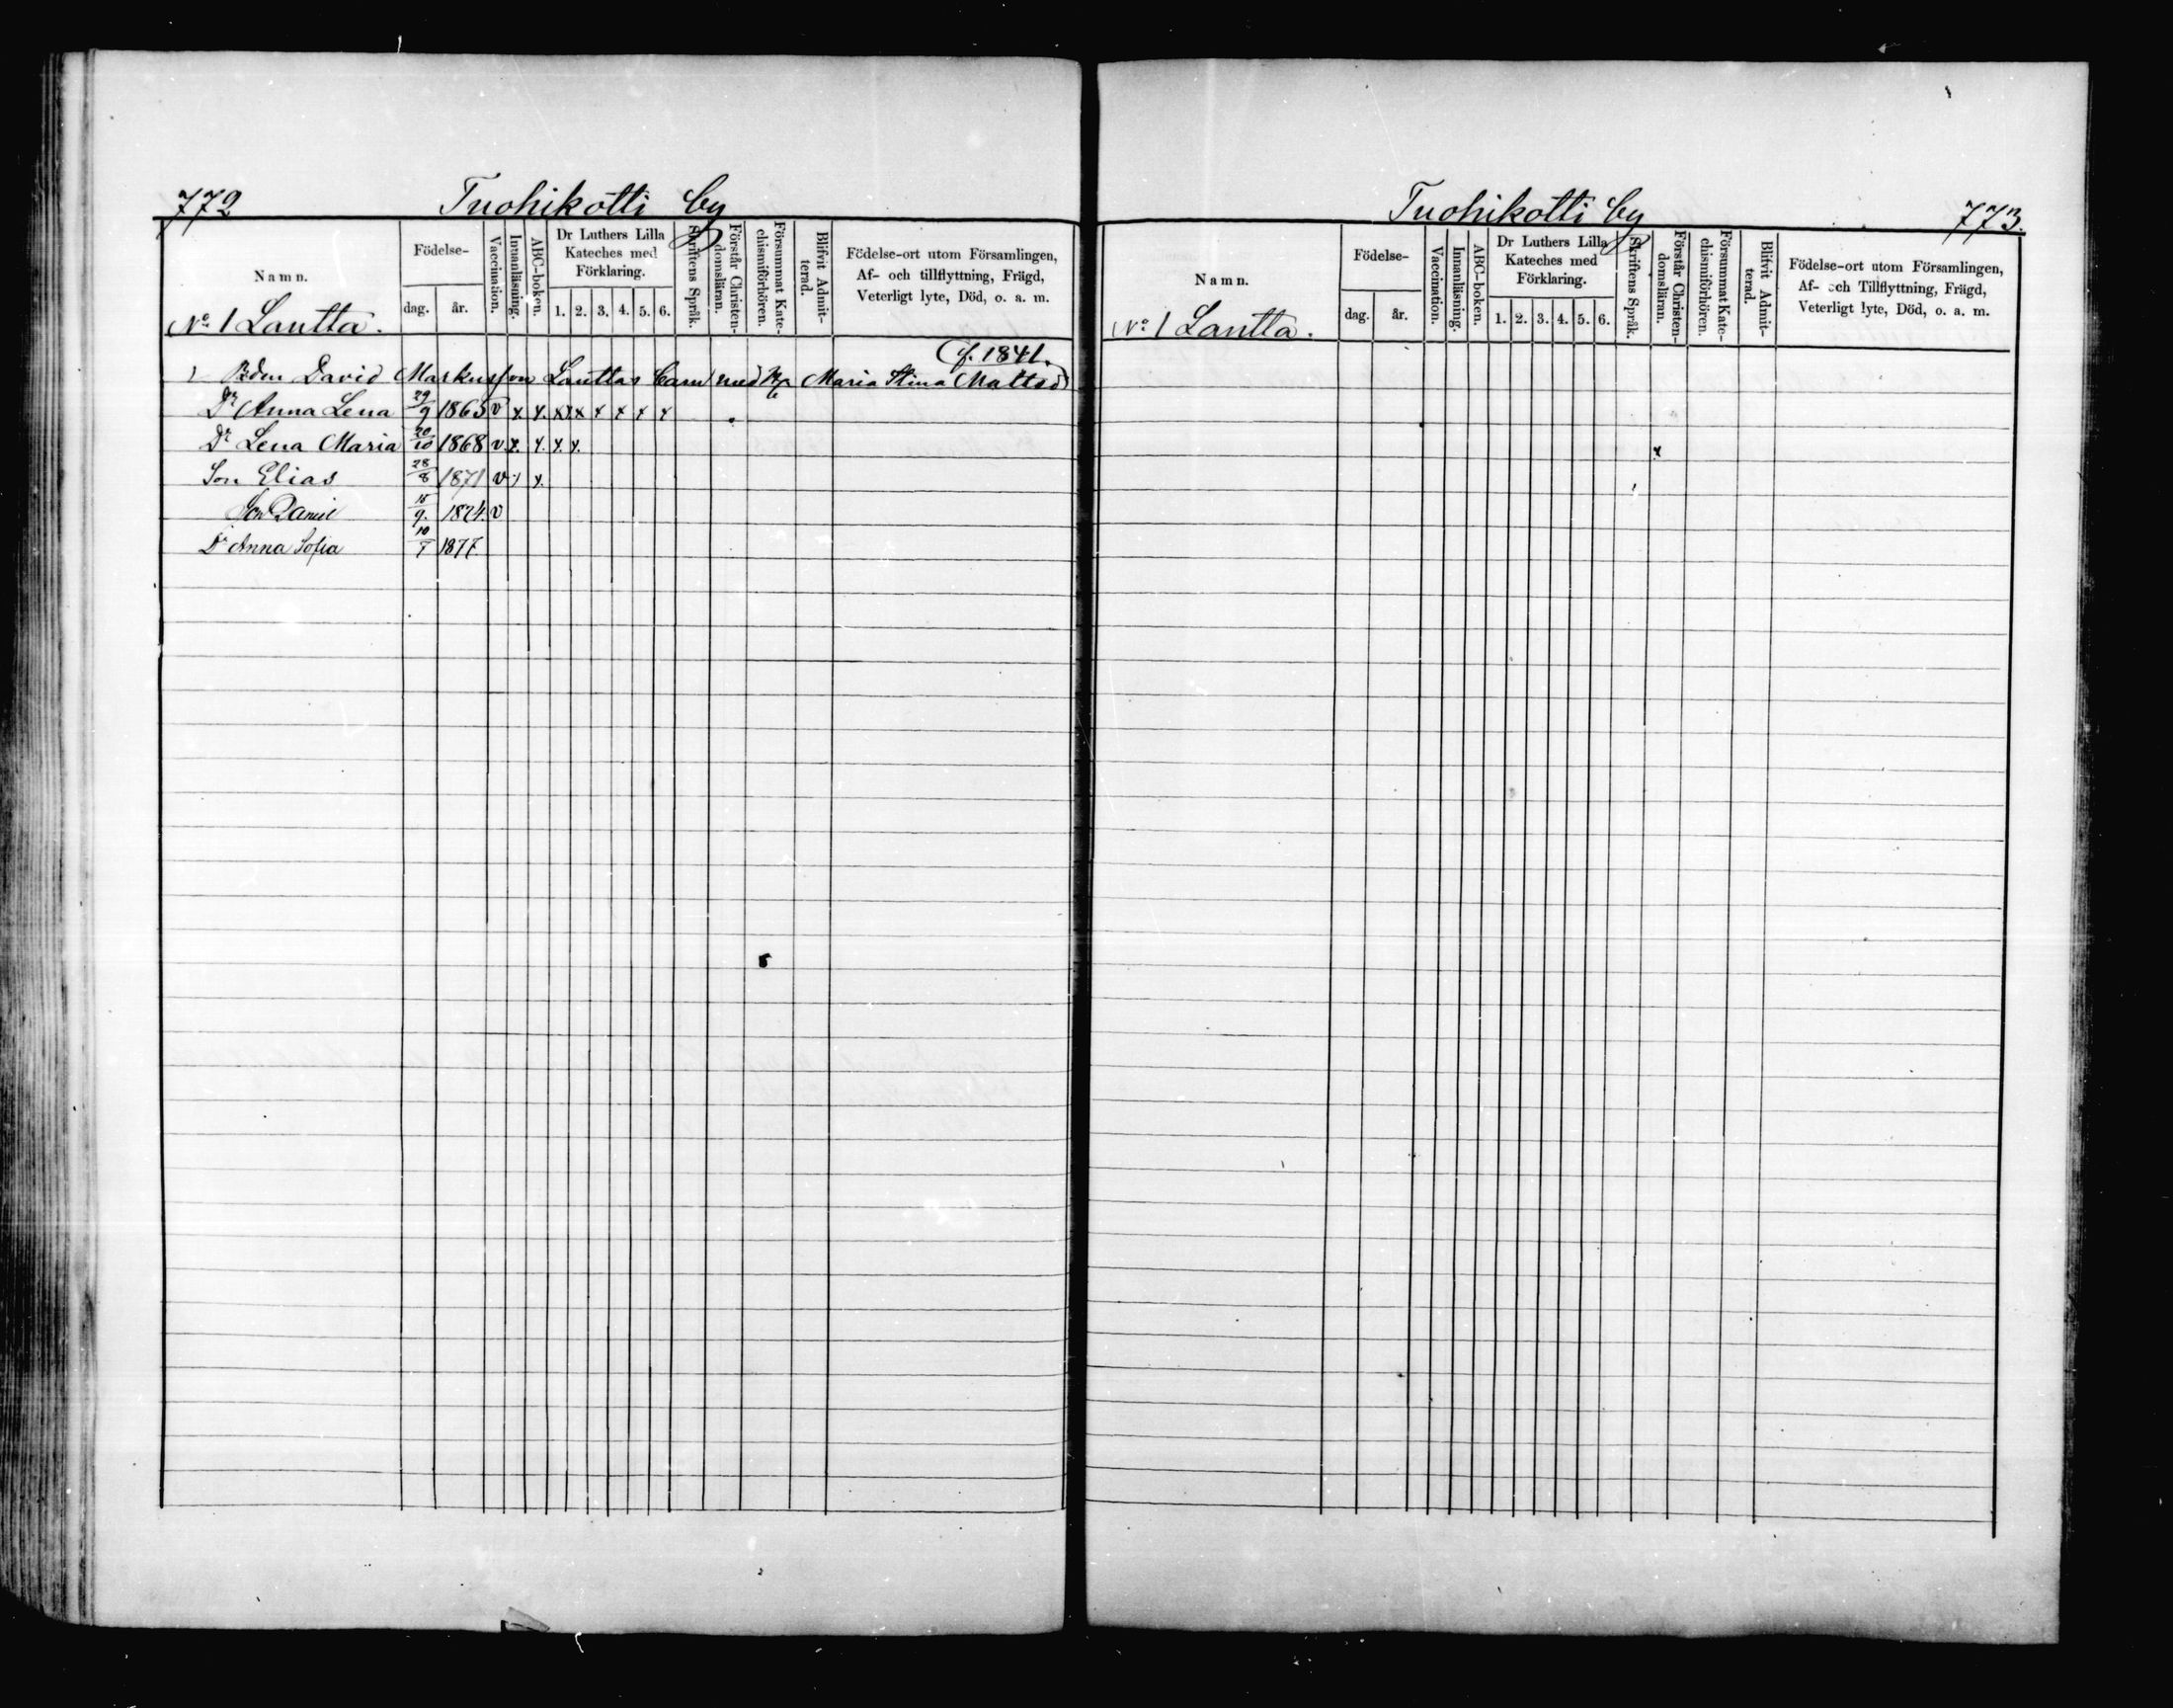 772 Tuohikotti by
Namn.
Födelse-
dag. år.
Vaccination.
Innanläsning.
ABC-boken.
Dr Luthers Lilla
Kateches med
Förklaring.
1. 2. 3. 4. 5. 6.
Skriftens Språk.
Förstår Christen-
domsläran.
Försummat Kate-
chismiförhören.
Blifvit Admit-
terad.
Födelse-ort utom Församlingen,
Af- och tillflyttning, Frägd,
Veterligt lyte, Död, o. a. m.
No 1 Lautta.
f. 1841.
1 Bden David Markusson Lauttas barn med Maria Stina Mattsd
Dr Anna Lena 29/9 1865 v x x. x x x x x x x
Dr Lena Maria 20/10 1868 v. x. x. x. x.
Son Elias 28/8 1871 v x.
Son Daniel 15/9. 1874. v
Dr Anna Sofia 1877
Tuohikotti by 773.
Namn.
Födelse-
dag. år.
Vaccination.
Innanläsning.
ABC-boken.
Dr Luthers Lilla
Kateches med
Förklaring.
1. 2. 3. 4. 5. 6.
Skriftens Språk.
Förstår Christen-
domsläran.
Försummat Kate-
chismiförhören.
Blifvit Admit-
terad.
Födelse-ort utom Församlingen,
Af- och Tillflyttning, Frägd,
Veterligt lyte, Död, o. a. m.
No 1 Lautta.